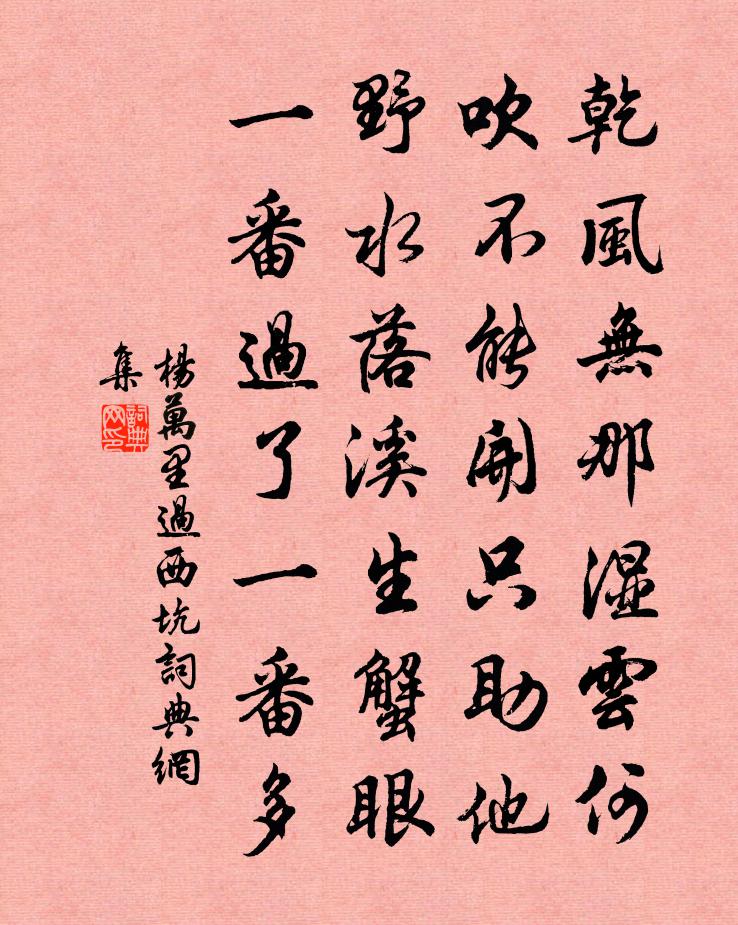 乾風無那濕雲何
吹不能開只助他
野水落溪生蟹眼
一番過了一番多
楊萬里過西坑詞典網
集
詞典网印